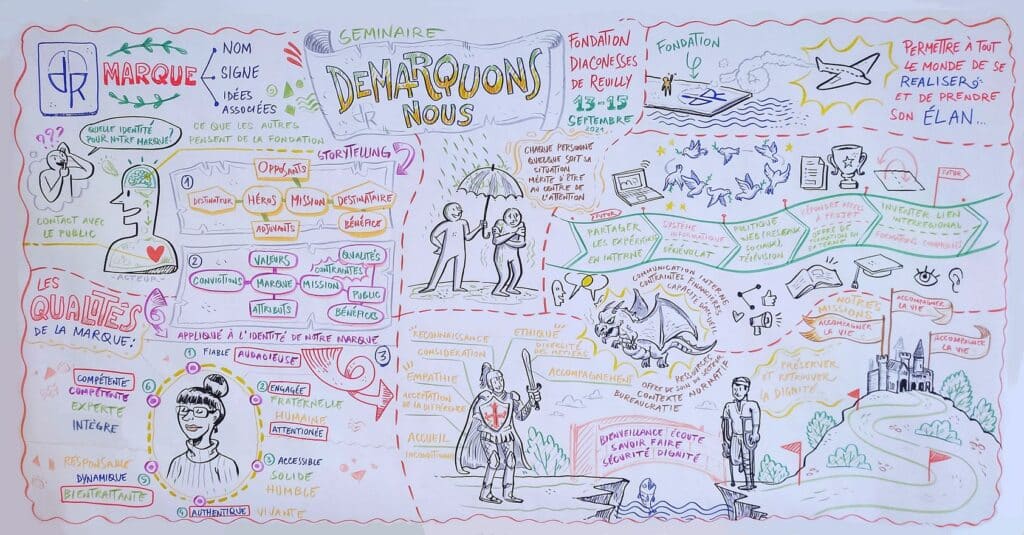 dR
MARQUE
NOM
SIGNE
IDÉES
ASSOCIÉES
SEMINAIRE
DEMARQUONS
NOUS
FONDATION
DIACONESSES
DE REUILLY
13-15
SEPTEMBRE
2021
FONDATION
PERMETTRE À TOUT
LE MONDE DE SE
REALISER
ET DE PRENDRE
SON ÉLAN...
???
QUELLE IDENTITÉ
POUR NOTRE MARQUE?
CE QUE LES AUTRES
PENSENT DE LA FONDATION
CONTACT AVEC
LE PUBLIC
-ACTEUR-
STORYTELLING
1
OPPOSANTS
DESTINATEUR
HÉROS
MISSION
DESTINATAIRE
ADJUVANTS
BÉNÉFICE
2
VALEURS
QUALITÉS
CONTRAINTES
CONVICTIONS
MARQUE
MISSION
PUBLIC
ATTRIBUTS
BÉNÉFICES
APPLIQUÉ À L'IDENTITÉ DE NOTRE MARQUE
3
CHAQUE PERSONNE
QUELQUE SOIT SA
SITUATION
MÉRITE D'ÊTRE
AU CENTRE DE
L'ATTENTION
FUTUR
PARTAGER
LES EXPÉRIENCES
EN INTERNE
SYSTÈME
INFORMATIQUE
BÉNÉVOLAT
POLITIQUE
WEB (RESEAUX
SOCIAUX)
TÉLÉVISION
RÉPONDRE APPELS
À PROJET
OFFRE DE
FORMATION EN
EXTERNE
INVENTER LIEN
INTERREGIONAL
FORMATIONS COMMUNES
FUTUR
LES
QUALITÉS
DE LA MARQUE:
1 FIABLE AUDACIEUSE
2 ENGAGÉE
FRATERNELLE
HUMAINE
ATTENTIONÉE
3 ACCESSIBLE
SOLIDE
HUMBLE
4 AUTHENTIQUE VIVANTE
RESPONSABLE
DYNAMIQUE 5
BIENTRAITANTE
6
COMPÉTENTE
COMPÉTENTE
EXPERTE
INTÈGRE
RECONNAISSANCE
CONSIDÉRATION
EMPATHIE
ACCEPTATION
DE LA DIFFÉRENCE
ACCUEIL
INCONDITIONNEL
ETHIQUE
DIVERSITÉ
DES MÉTIERS
ACCOMPAGNEMENT
COMMUNICATION INTERNE
CONTRAINTES FINANCIÈRES
CAPACITÉ D'ACCUEIL
RESSOURCES
OFFRE DE SOIN DU SECTEUR
CONTEXTE NORMATIF
BUREAUCRATIE
BIENVEILLANCE | ÉCOUTE
SAVOIR FAIRE
SÉCURITÉ | DIGNITÉ
PRÉSERVER
ET RETROUVER
LA DIGNITÉ...
NOTRES
MISSIONS
ACCOMPAGNER
LA VIE
ACCOMPAGNER
LA VIE
ACCOMPAGNER
LA VIE